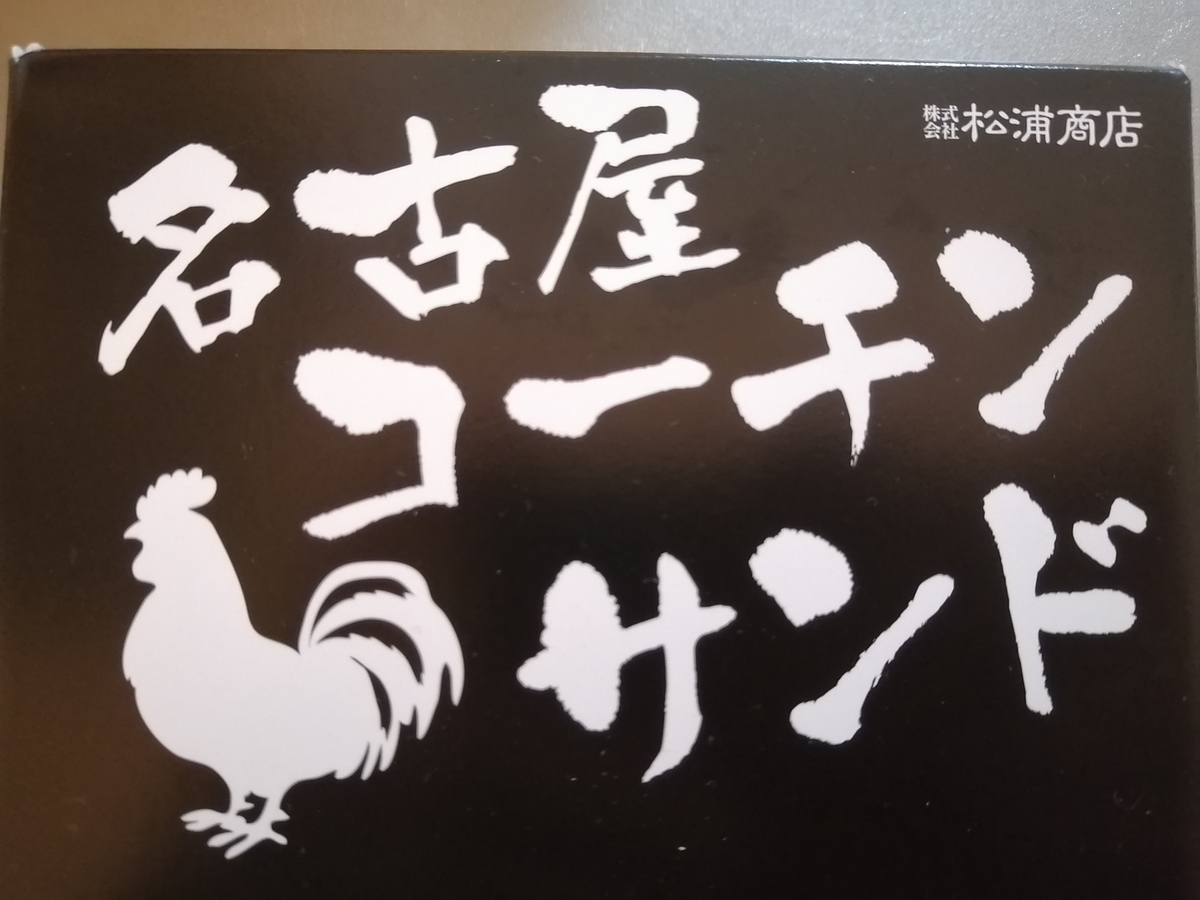 株式会社松浦商店
名古屋
コーチン
サンド